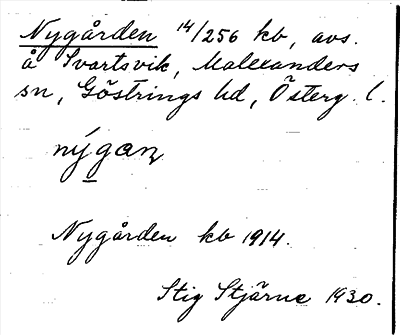 Nygården 14/256 kb, avs.
å Svartsvik, Malexanders
sn, Göstrings hd, Österg. l.
nýgaɳ
Nygården kb 1914.
Stig Stjärne 1930.